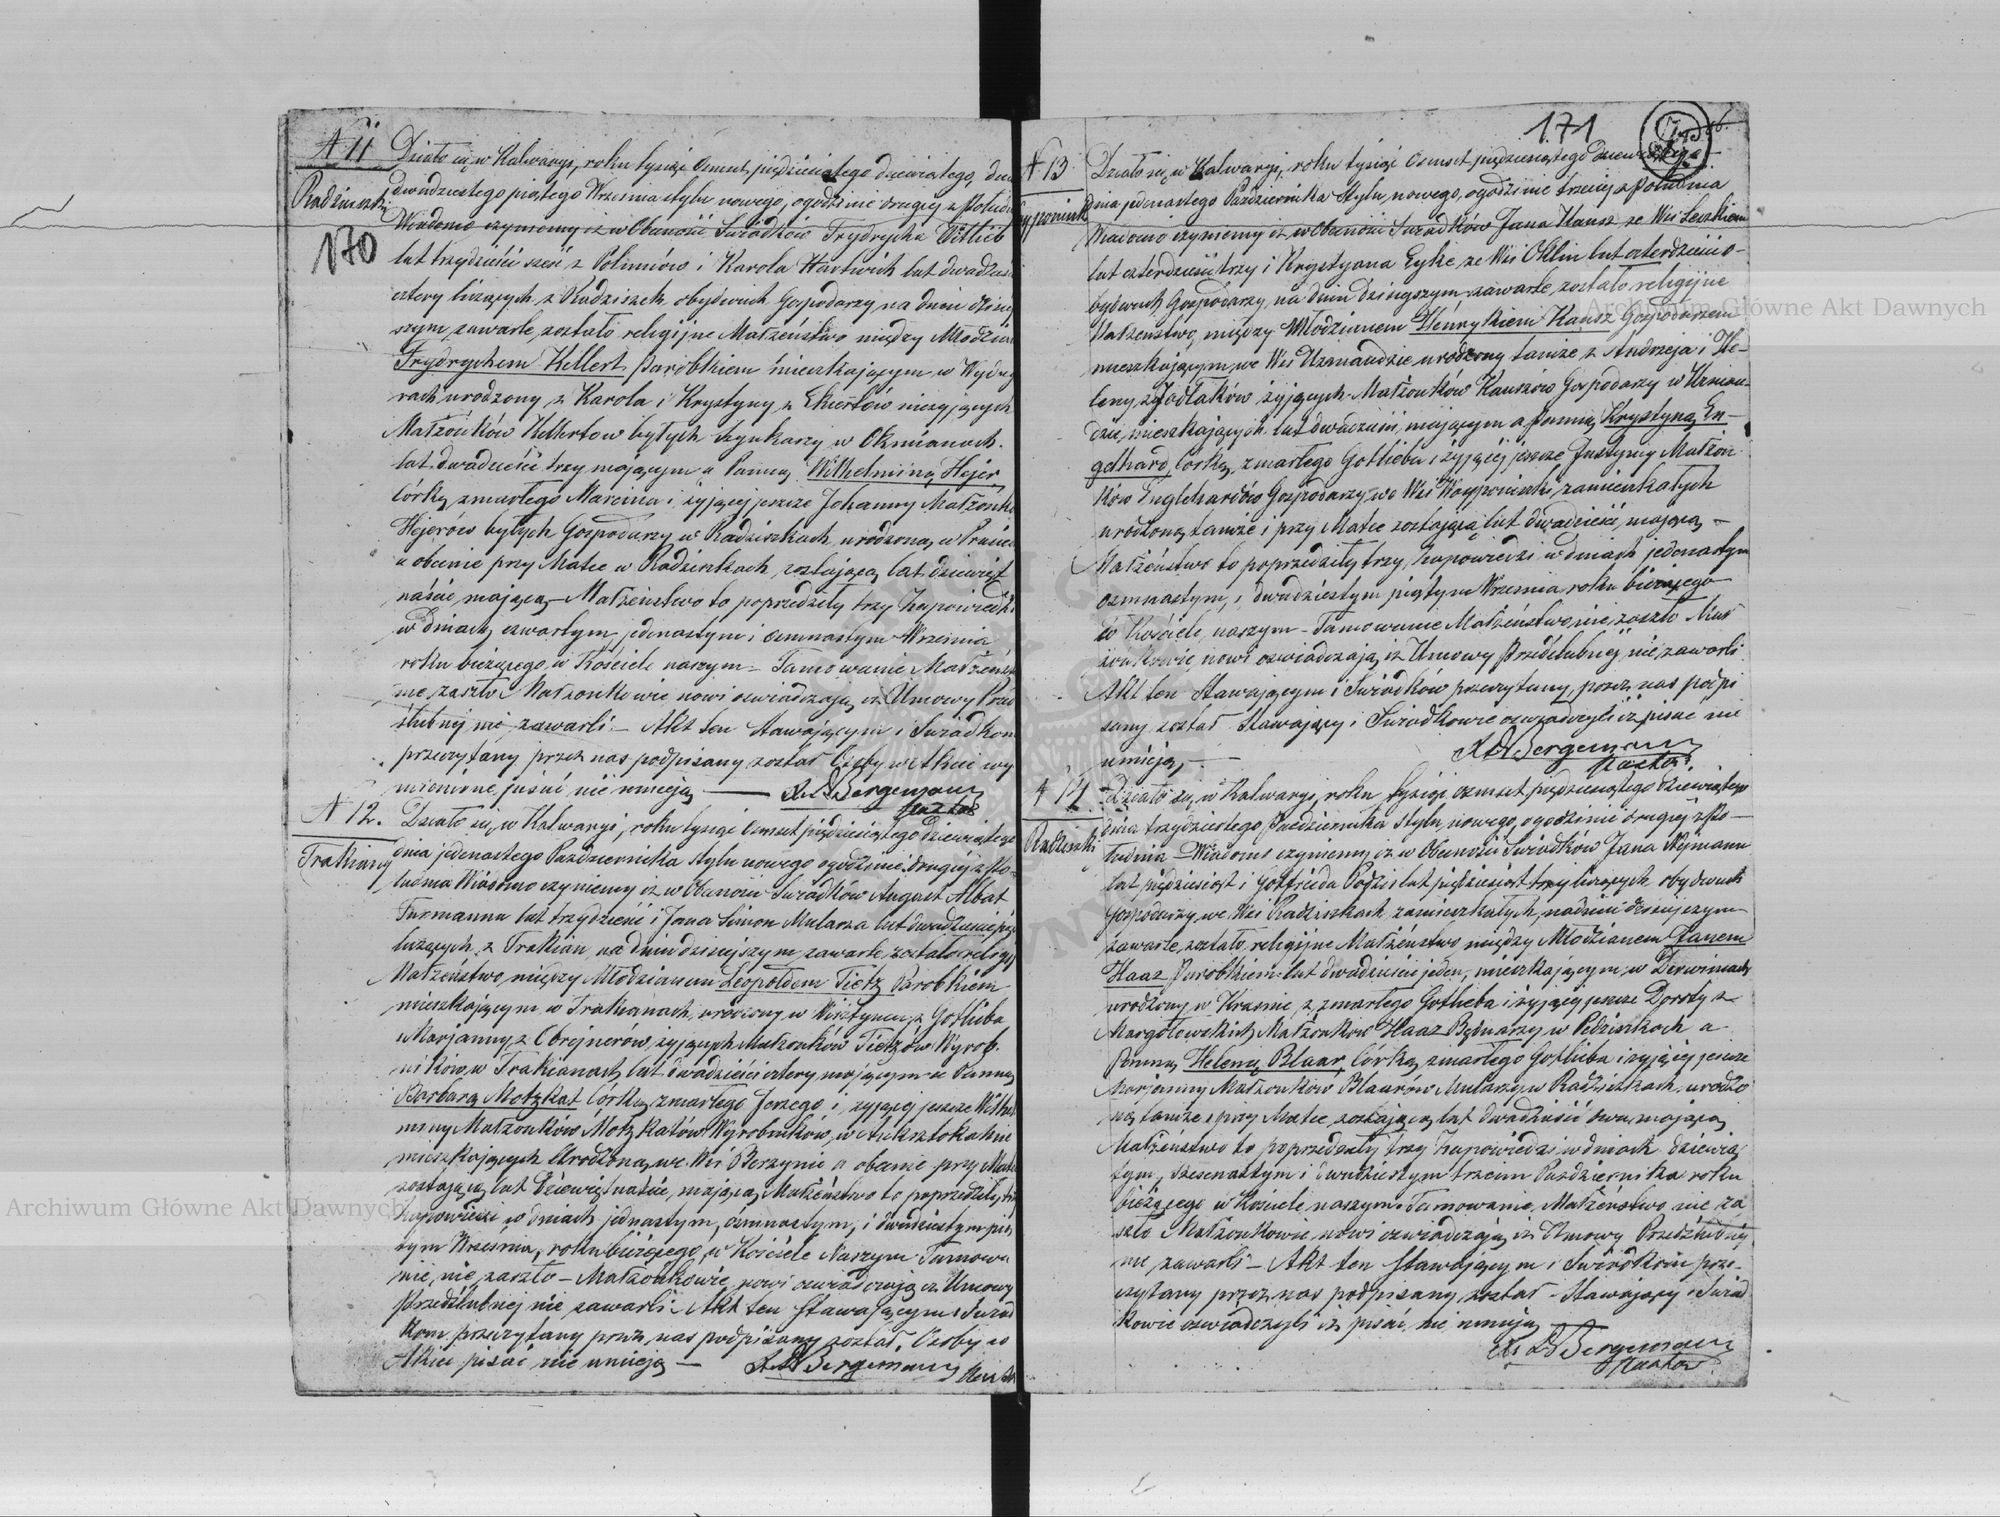 N 11
Radziszki
170
Działo się w Kalwaryi, roku tysiąc Osmset pięćdziesiątego dziewiątego, dnia
dwudziestego piątego Września stylu nowego, o godzinie drugiej z Połud
Wiadomo czynimy iż w Obecności Świadków Frydrycha Wittlieb
lat trzydzieści sześć z Poliniów i Karola Hartwich lat dwadzieś
cztery liczących z Radziszek, obydwuch Gospodarzy na dniu dzisiej
szym zawarte zostało religijne Małżeństwo między Młodzia
Frydrychem Kellert Parobkiem mieszkającym w
rach urodzony z Karola i Krystyny z Ekiertów nieżyjących
Małżonków Kellertów byłych Szynkarzy w Okmianach.
lat dwadzieście trzy mającym a Panną Wilhelminą Hejer
Córką zmarłego Marcina i żyjącej jeszcze Johanny Małżonk
Hejerów byłych Gospodarzy w Radziszkach urodzoną w Prusie
a obecnie przy Matce w Radziszkach zostającą lat dziewięt
naście mającą – Małżeństwo to poprzedziły trzy Zapowiedzi
w dniach czwartym, jedenastym i osmnastym Września
roku bieżącego w Kościele naszym – Tamowanie Małżeńst
nie zaszło Małżonkowie nowi oswiadczają iż Umowy Przed
ślubnej nie zawarli – Akt ten stawającym i Świadkom
przeczytany przez nas podpisany został Osoby w Akcie wy
mienione pisać nie umieją — Bergemann
Pastor
N 12.
Trakiany
Działo się w Kalwaryi, roku tysiąc Osmset pięćdziesiątego dziewiątego
dnia jedenastego Października stylu nowego o godzinie drugiej z Po-
łudnia Wiadomo czyniemy iż w Obecności Świadków August Albat
Furmanna lat trzydzieści i Jana Simon Mularza lat dwadzieście pię
liczących z Trakian na dniu dzisiejszym zawarte zostało religij
Małżeństwo między Młodzianem Leopoldem Tietz Parobkiem
mieszkającym w Trakianach, urodzony w Wisztyncu z Gotlieba
i Marjanny z Obrejnerów żyjących Małżonków Tietzów Wyrob-
ników w Trakianach lat dwadzieścia cztery mającym a Panną
Barbarą Motzkat Córką zmarłego Jerzego i żyjącej jeszcze Wilhel
miny Małżonków Motzkatów Wyrobników w
mieszkających Urodzoną we Wsi Berzynie a obecnie przy Matce
zostającą lat dziewiętnaście mającą Małżeństwo to poprzedziły trzy
Zapowiedzi w dniach jednastym, osmnastym, i dwudziestym pią
tym Września roku bieżącego w Kościele Naszym Tamowa
nie, nie zaszło – Małżonkowie nowi oswiadczają iż Umowy
Przedślubnej nie zawarli – Akt ten Stawającym i Świad
kom przeczytany przez nas podpisany został, Osoby w
Akcie pisać nie umieją — Bergemann Pastor
171
N 13
Działo się w Kalwaryi, roku tysiąc osmset pięćdziesiątego dziewiątego
dnia jednastego Października stylu nowego, o godzinie trzeciej z południa
Wiadomo czyniemy iż w Obecności Świadków Jana Kausz ze Wsi
lat czterdzieści trzy i Krystyana Eyke ze Wsi Oklin lat czterdzieści o-
bydwuch Gospodarzy na dniu dzisiejszym zawarte zostało religijne
Małżeństwo między Młodzianem Henrykiem Kausz Gospodarzem
mieszkającym we Wsi Użnaudzie urodzony tamże z Andrzeja i He-
leny z Jodłaków żyjących Małżonków Kauszów Gospodarzy w Użnau-
dzie mieszkających lat dwadzieści mającym a Panną Krystyną En-
gelhard Córką zmarłego Gottlieba i żyjącej jeszcze Justyny Małżon
ków Englehardów Gospodarzy we Wsi zamieszkałych
urodzoną tamże i przy Matce zostającą lat dwadzieści mającą –
Małżeństwo to poprzedziły trzy Zapowiedzi w dniach jedenastym
osmnastym, i dwudziestym piątym Września roku bieżącego
w Kościele naszym – Tamowanie Małżeństwa nie zaszło Mał
żonkowie nowi oswiadczają iż Umowy Przedślubnej nie zawarli
Akt ten Stawającym i Świadków przeczytany przez nas podpi
sany został Stawający i Świadkowie oswiadczyli iż pisać nie
umieją — Bergemann
Pastor.
N 14
Radziszki
Działo się w Kalwaryi, roku tysiąc osmset pięćdziesiątego dziewiątego
dnia trzydziestego Października Stylu nowego, o godzinie drugiej z Po–
łudnia – Wiadomo czyniemy iż w Obecności Świadków Jana Nejmann
lat pięćdziesiąt i Gottfrieda lat pięćdziesiąt trzy liczących obydwuch
Gospodarzy we Wsi Radziszkach zamieszkałych, na dniu dzisiejszym
zawarte zostało religijne Małżeństwo między Młodzianem Janem
Haaz Parobkiem lat dwadzieście jeden, mieszkającym w Derwiniach
urodzony w Krasnie z zmarłego Gotlieba i żyjącej jeszcze Doroty z
Margolowskich Małżonków Haaz Bednarzy w Pedziszkach a
Panną Heleną Blaar Córką zmarłego Gotlieba i żyjącej jeszcze
Marjanny Małżonków Blaarów Mularzy w Radziszkach, urodzo
ną tamże i przy Matce zostającą lat dwadzieście dwa mającą
Małżeństwo to poprzedziły trzy Zapowiedzi w dniach dziewią
tym, szesnastym i dwudziestym trzecim Października roku
bieżącego w Kościele naszym – Tamowanie Małżeństwa nie za
szło Małżonkowie nowi oswiadczają iż Umowy Przedślubnej
nie zawarli – Akt ten Stawającym i Świadkom prze-
czytany przez nas podpisany został – Stawający i Świad
kowie oswiadczyli iż pisać nie umieją
Bergemann
Pastor
Archiwum Główne Akt Dawnych
Archiwum Główne Akt Dawnych